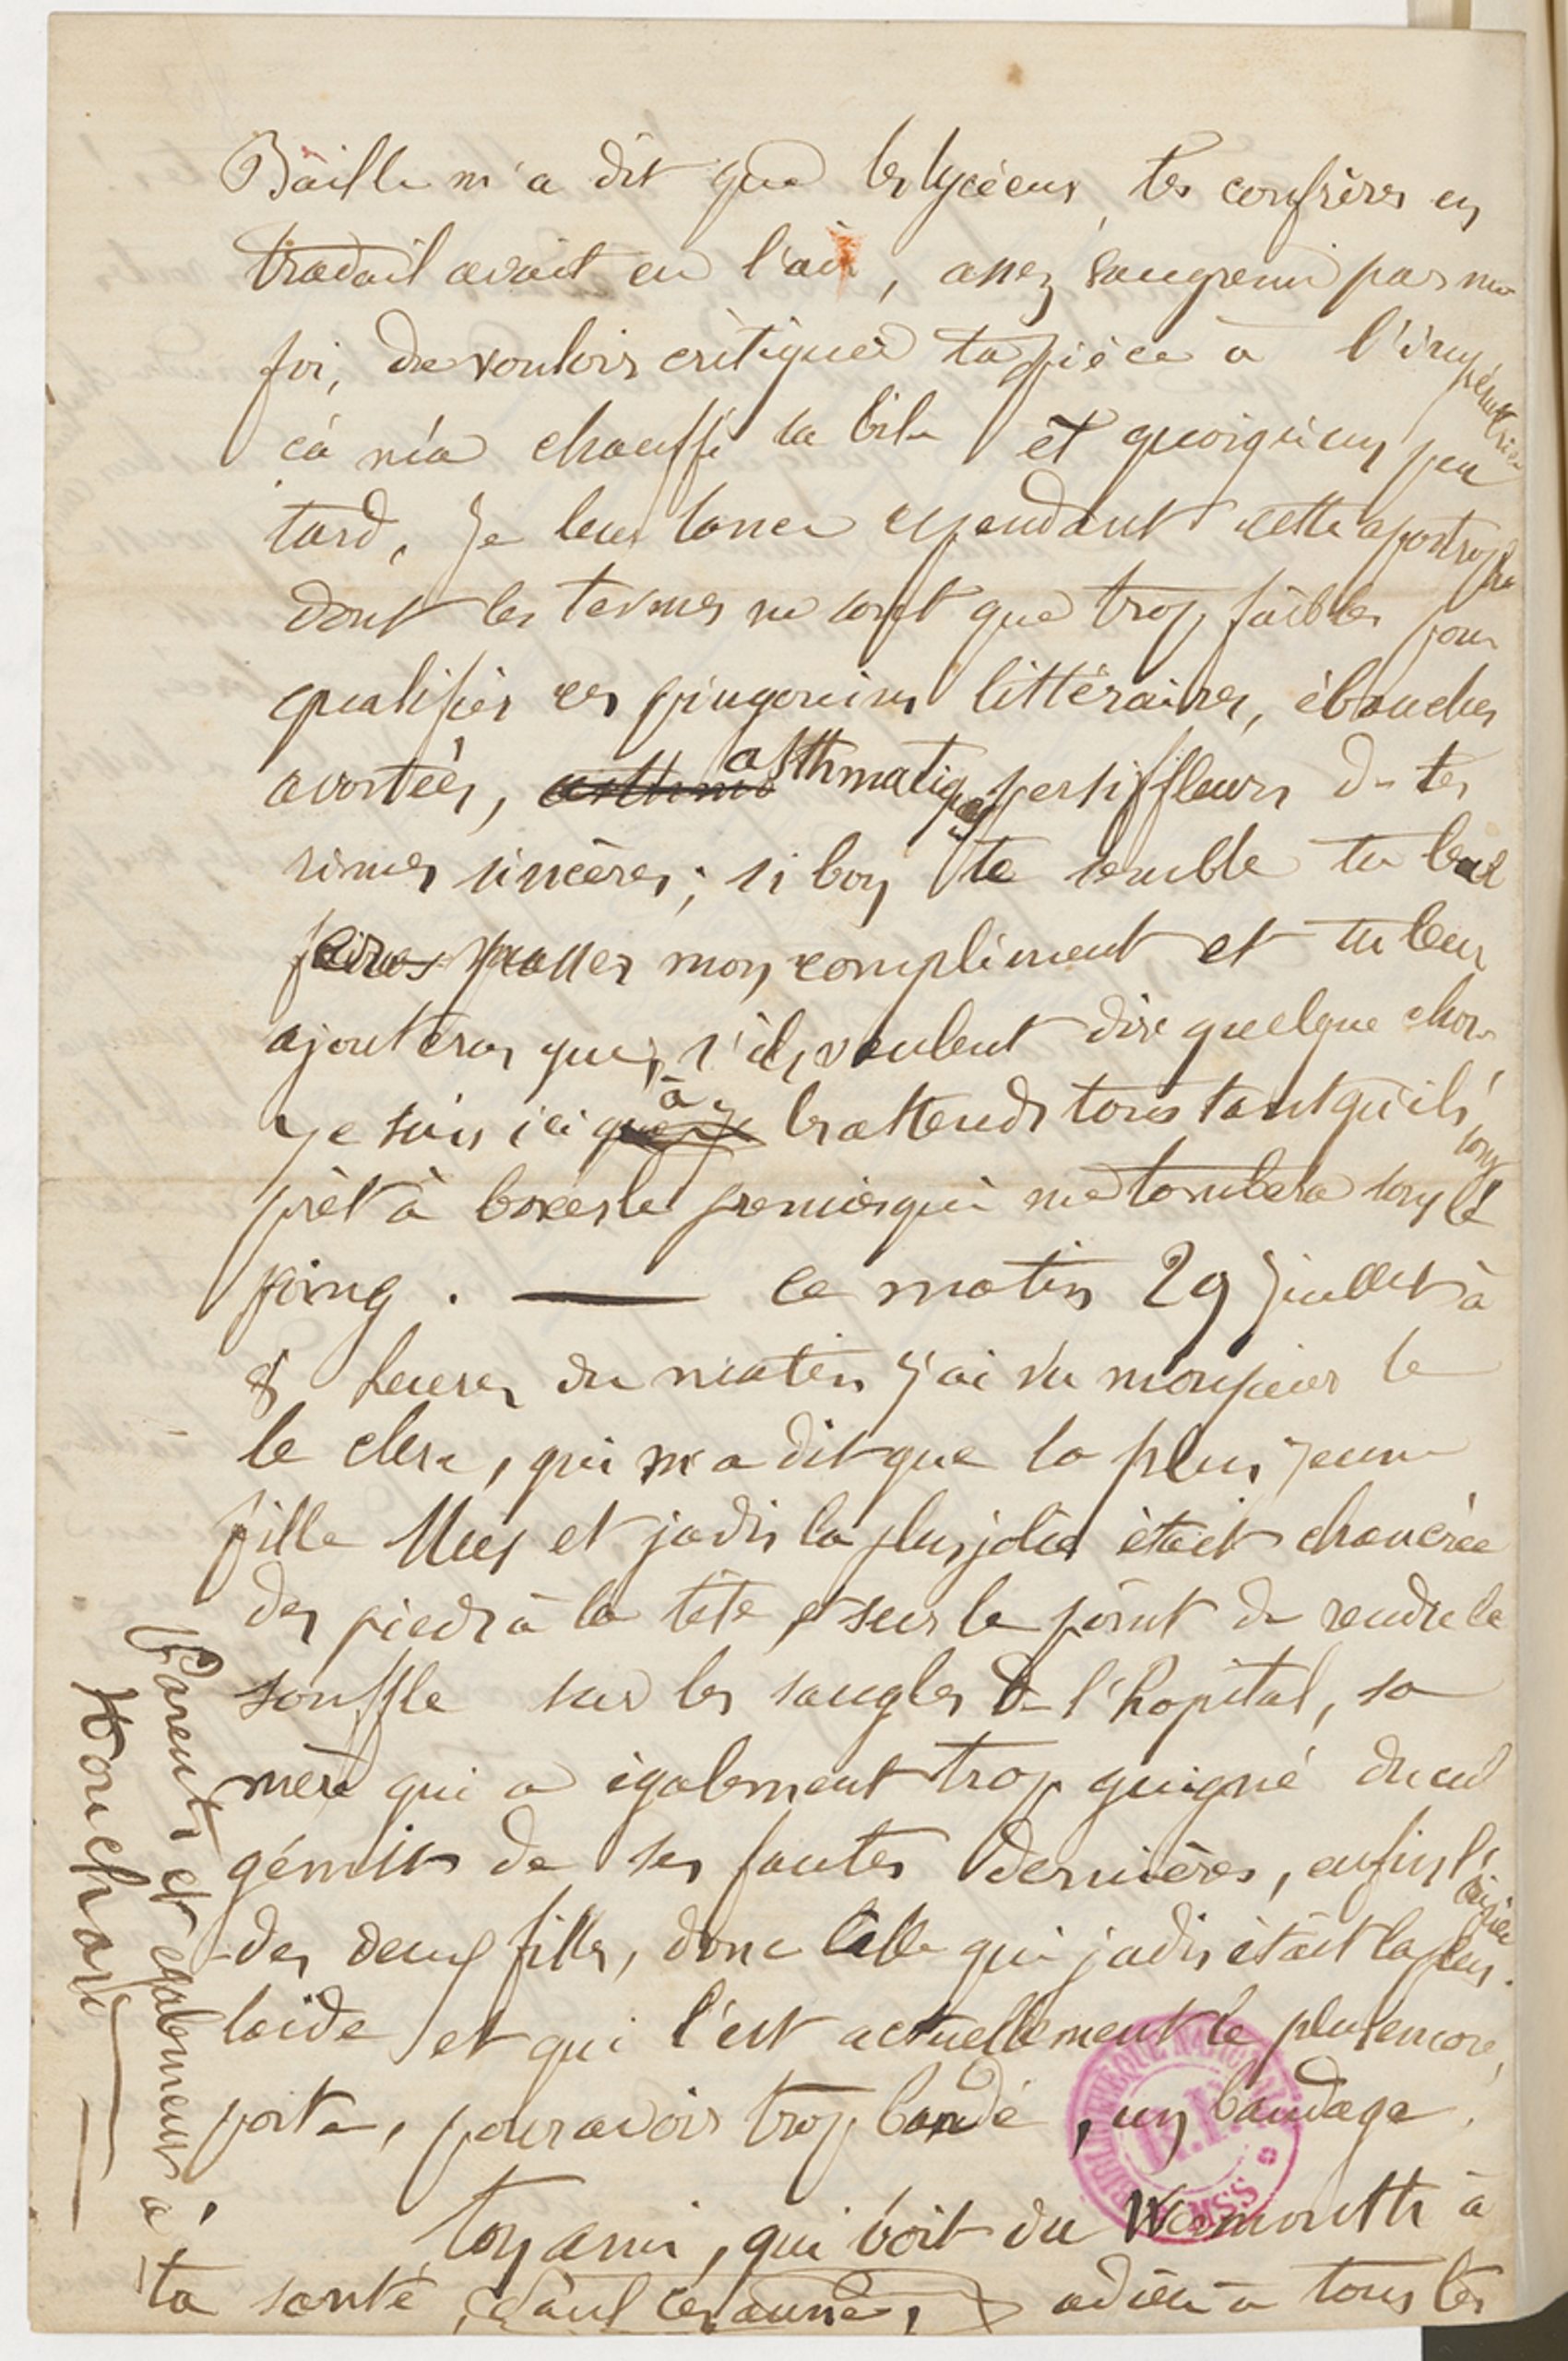 Baille m'a dit que les lycéens, tes confrères en
travail avait eu l'air, assez saugrenu par ma
foi, de vouloir critiquer ta pièce à l'impératrice
cà m'a chauffé la bile et quoiqu'un peu
tard, Je leur lance cependant cette apostrophe
dont les termes ne sont que trop faibles pour
qualifier ces pingouins littéraires, ébauches
avortées, asthmatiques persiffleurs de tes
rimes sincères; si bon te semble tu leur
feras passer mon compliment et tu leur
ajouteras que, s'ils veulent dire quelque chose
je suis ici à les attendre tous tant qu'ils sont
prêt à boxer le premier qui me tombera sous le
poing. — ce matin 29 Juillet à
8 heures du matin j'ai vu monsieur le
le clerc, qui m'a dit que la plus jeune
fille Mees et jadis la plus jolie était chancrée
des pieds à la tête, et sur le point de rendre le
souffle sur les sangles de l'hopital, sa
mère qui a également trop guigné du cul
gémit de ses fautes dernières, enfin l'aînée
des deux filles, donc celle qui jadis était la plus
laide et qui l'est actuellement le plus encore,
porte, pour avoir trop bandé, un bandage.
ton ami, qui boit du Vermouth à
ta santé, Paul Cézanne, adieu à tous les
Parents et également à
Houchard
BIBLIOTHÈQUE NATIONALE
R.F.
MSS